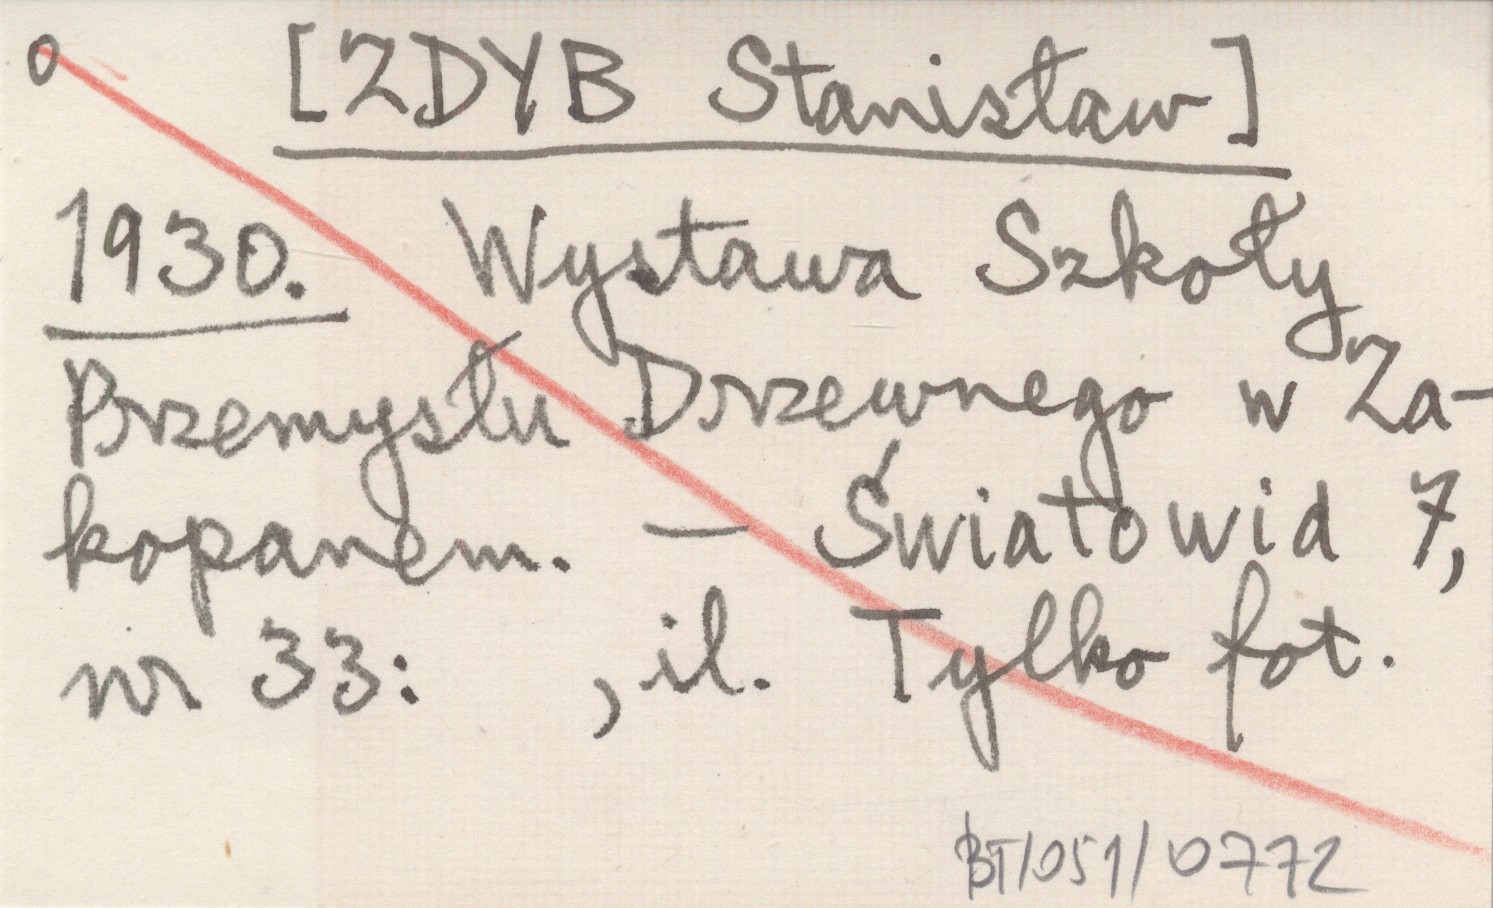 0 [ZDYB Stanisław]
1930. Wystawa Szkoły
Przemysłu Drzewnego w Za-
kopanem. — Światowid 7,
nr 33:    , il. Tylko fot.
BT/051/0772